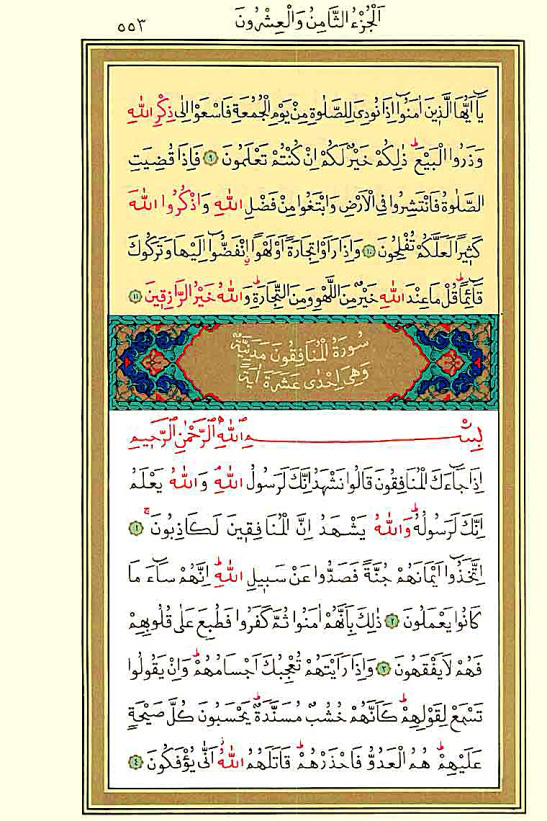 اَلْجُزْءُ الثَّامِنُ وَالْعِشْرُونَ
٥٥٣
يَٓا اَيُّهَا الَّذ۪ينَ اٰمَنُٓوا اِذَا نُودِيَ لِلصَّلٰوةِ مِنْ يَوْمِ الْجُمُعَةِ فَاسْعَوْا اِلٰى ذِكْرِ اللّٰهِ
وَذَرُوا الْبَيْعَۜ ذٰلِكُمْ خَيْرٌ لَكُمْ اِنْ كُنْتُمْ تَعْلَمُونَ ﴿٩﴾ فَاِذَا قُضِيَتِ
الصَّلٰوةُ فَانْتَشِرُوا فِي الْاَرْضِ وَابْتَغُوا مِنْ فَضْلِ اللّٰهِ وَاذْكُرُوا اللّٰهَ
كَث۪يرًا لَعَلَّكُمْ تُفْلِحُونَ ﴿١٠﴾ وَاِذَا رَاَوْا تِجَارَةً اَوْ لَهْوًاۨ انْفَضُّٓوا اِلَيْهَا وَتَرَكُوكَ
قَٓائِمًاۜ قُلْ مَا عِنْدَ اللّٰهِ خَيْرٌ مِنَ اللَّهْوِ وَمِنَ التِّجَارَةِۜ وَاللّٰهُ خَيْرُ الرَّازِق۪ينَ ﴿١١﴾
سُورَةُ الْمُنَافِقُونَ مَدَنِيَّةٌ
وَهِيَ اِحْدٰى عَشْرَةَ اٰيَةً
بِسْمِ اللّٰهِ الرَّحْمٰنِ الرَّح۪يمِ
اِذَا جَٓاءَكَ الْمُنَافِقُونَ قَالُوا نَشْهَدُ اِنَّكَ لَرَسُولُ اللّٰهِۢ وَاللّٰهُ يَعْلَمُ
اِنَّكَ لَرَسُولُهُۜ وَاللّٰهُ يَشْهَدُ اِنَّ الْمُنَافِق۪ينَ لَكَاذِبُونَۚ ﴿١﴾
اِتَّخَذُٓوا اَيْمَانَهُمْ جُنَّةً فَصَدُّوا عَنْ سَب۪يلِ اللّٰهِۜ اِنَّهُمْ سَٓاءَ مَا
كَانُوا يَعْمَلُونَ ﴿٢﴾ ذٰلِكَ بِاَنَّهُمْ اٰمَنُوا ثُمَّ كَفَرُوا فَطُبِعَ عَلٰى قُلُوبِهِمْ
فَهُمْ لَا يَفْقَهُونَ ﴿٣﴾ وَاِذَا رَاَيْتَهُمْ تُعْجِبُكَ اَجْسَامُهُمْۜ وَاِنْ يَقُولُوا
تَسْمَعْ لِقَوْلِهِمْۜ كَاَنَّهُمْ خُشُبٌ مُسَنَّدَةٌۜ يَحْسَبُونَ كُلَّ صَيْحَةٍ
عَلَيْهِمْۜ هُمُ الْعَدُوُّ فَاحْذَرْهُمْۜ قَاتَلَهُمُ اللّٰهُۘ اَنّٰى يُؤْفَكُونَ ﴿٤﴾